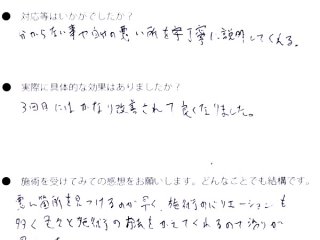 ● 対応等はいかがでしたか？
わからない事や自分の悪い所を丁寧に説明してくれる。
● 実際に具体的な効果はありましたか？
3回目にはかなり改善されて良くなりました。
● 施術を受けてみての感想をお願いします。どんなことでも結構です。
悪い箇所を見つけるのが早く、施術のバリエーションも
多く色々と施術の方法をかえてくれるので治りが